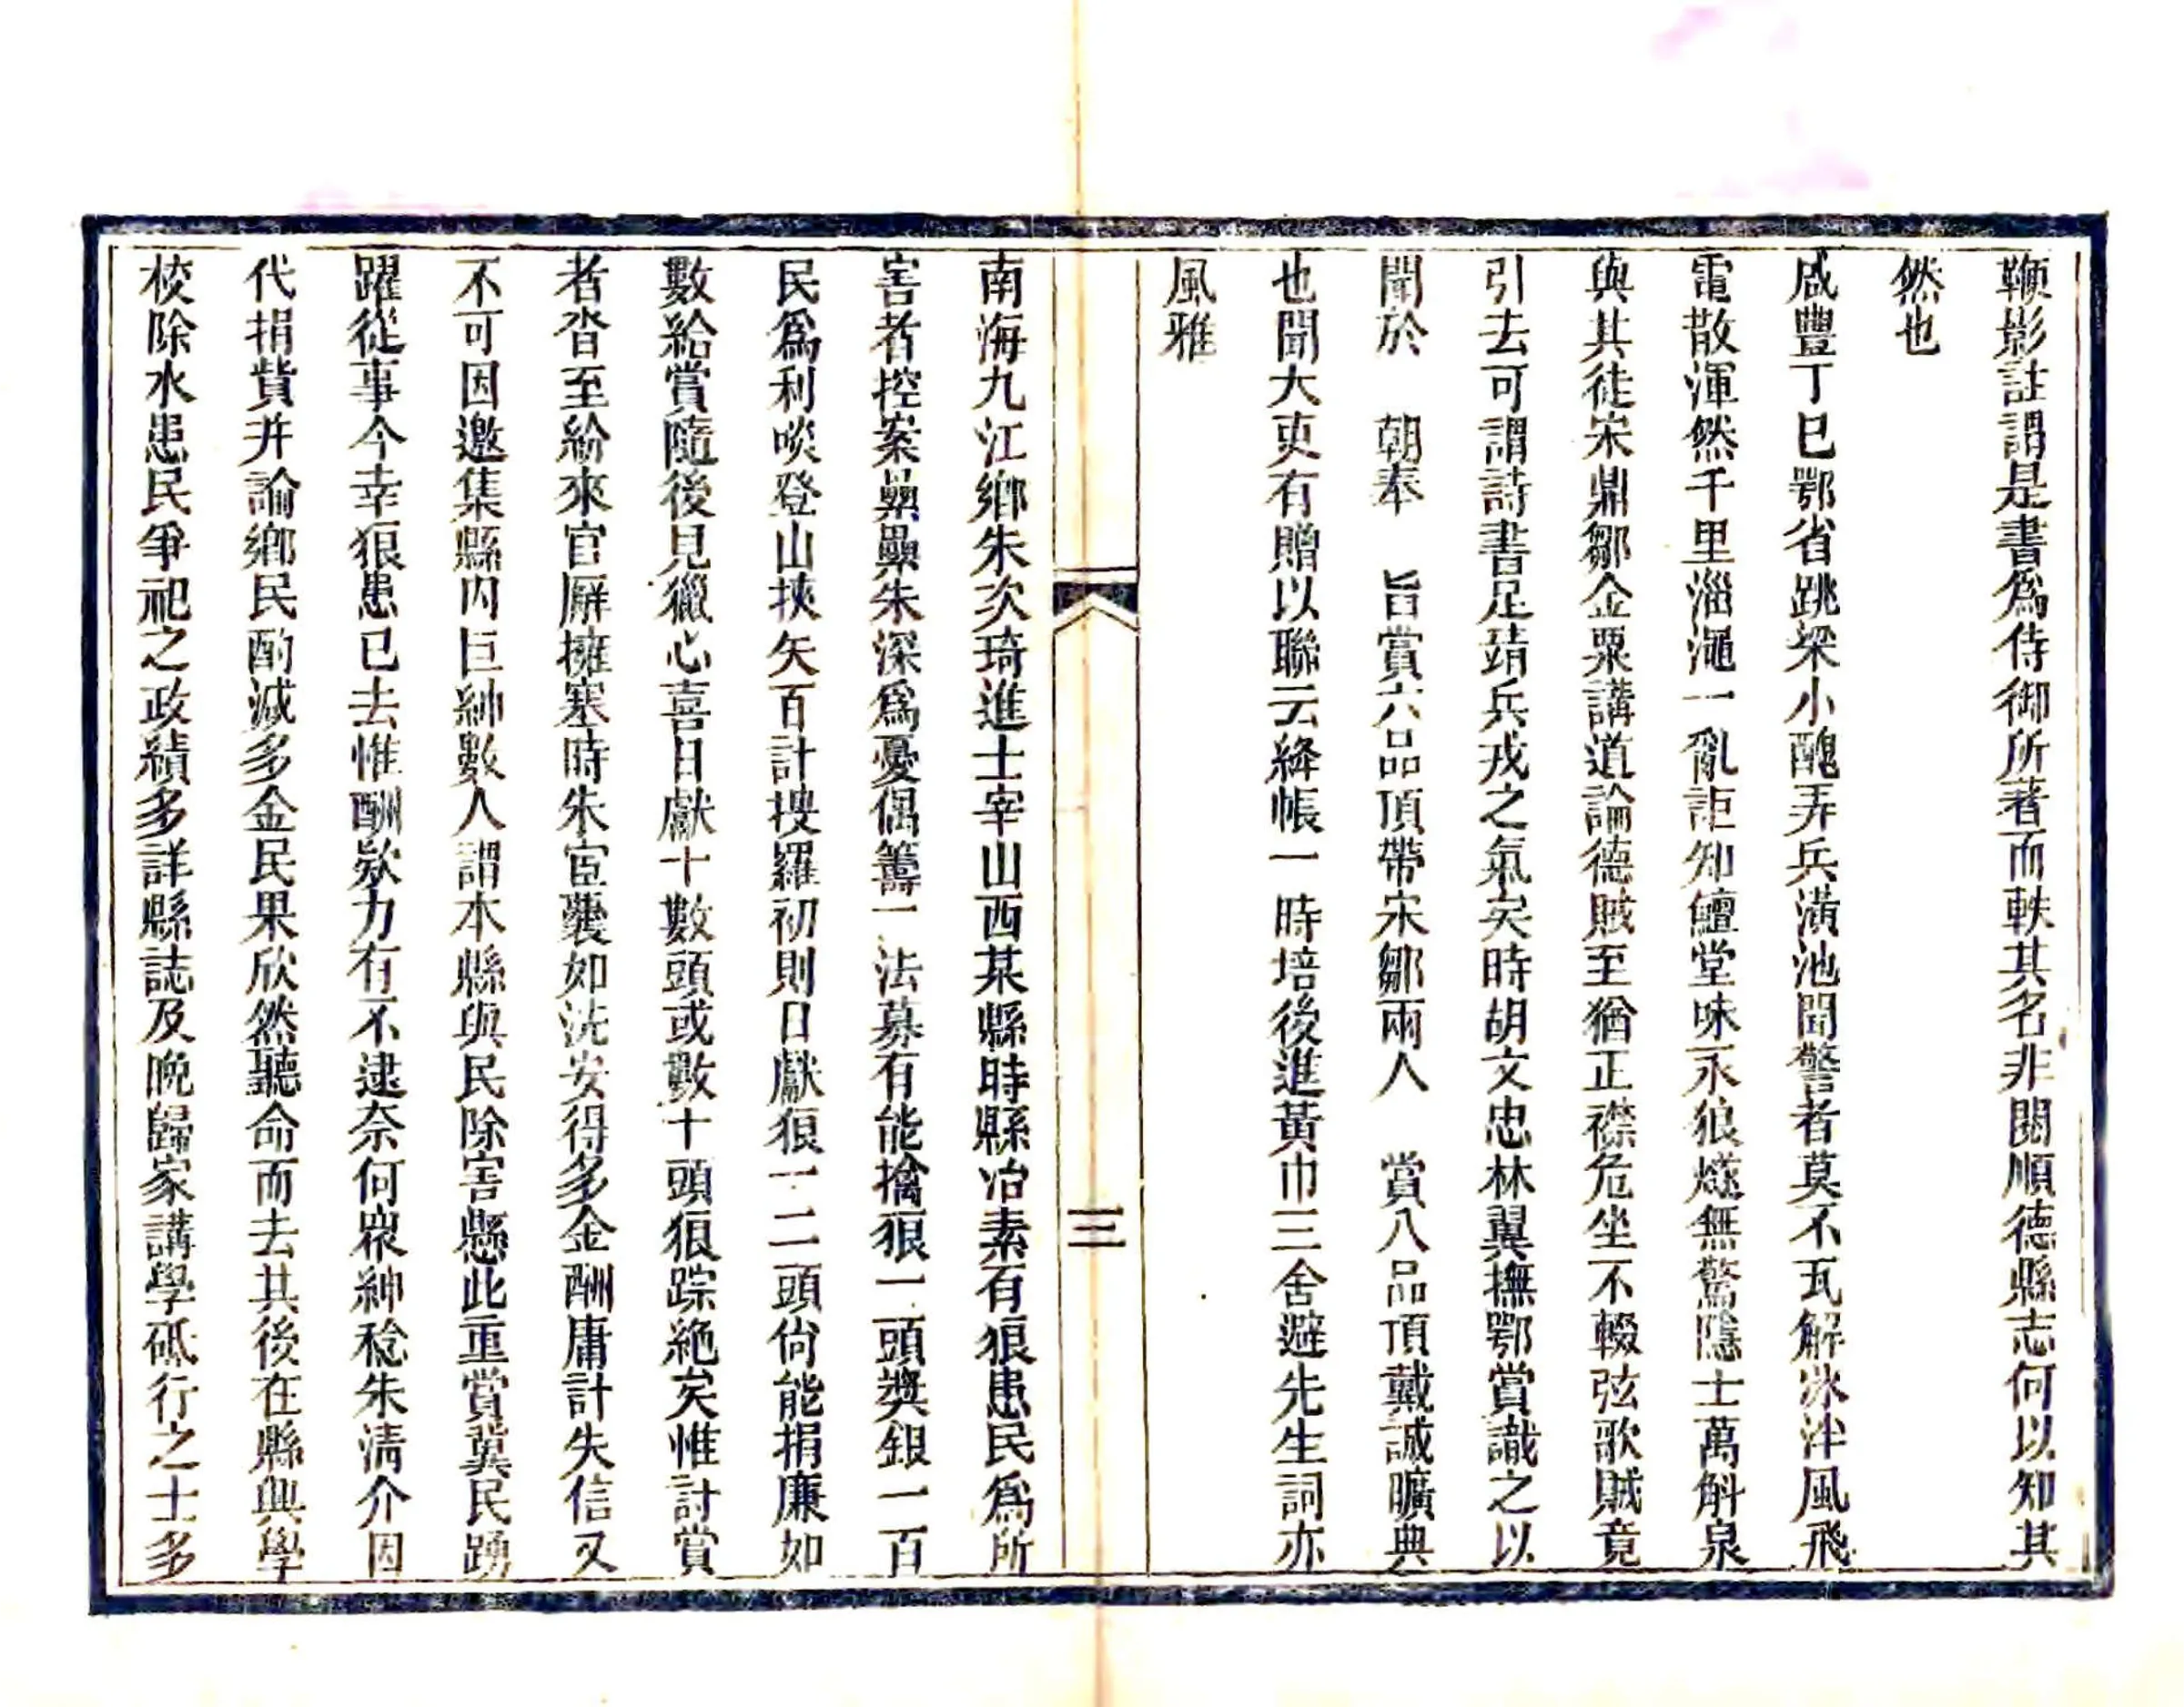 鞭影註謂是書爲侍御所著而軼其名非閱順德縣志何以知其
然也
咸豐丁巳鄂省跳梁小醜弄兵潢池聞警者莫不瓦解冰泮風飛
電散渾然千里淄澠一亂詎知鱣堂味永狼燧無驚隱士萬斛泉
與其徒宋鼎鄒金粟講道論德賊至猶正襟危坐不輟弦歌賊竟
引去可謂詩書足靖兵戎之氣矣時胡文忠林翼撫鄂賞識之以
聞於　朝奉　旨賞六品頂帶宋鄒兩人　賞八品頂戴誠曠典
也聞大吏有贈以聯云絳帳一時培後進黃巾三舍避先生詞亦
風雅
三
南海九江鄉朱次琦進士宰山西某縣時縣冶素有狼患民爲所
害者控案纍纍朱深爲憂偶籌一法募有能擒狼一頭獎銀一百
民爲利啖登山挾矢百計搜羅初則日獻狼一二頭尙能捐廉如
數給賞隨後見獵心喜日獻十數頭或數十頭狼踪絶矣惟討賞
者沓至紛來官廨擁塞時朱宦囊如洗安得多金酬庸計失信又
不可因邀集縣內巨紳數人謂本縣與民除害懸此重賞冀民踴
躍從事今幸狼患已去惟酬欵力有不逮奈何衆紳稔朱清介因
代捐貲并論鄉民酌減多金民果欣然聽命而去其後在縣興學
校除水患民爭祀之政績多詳縣誌及晩歸家講學砥行之士多